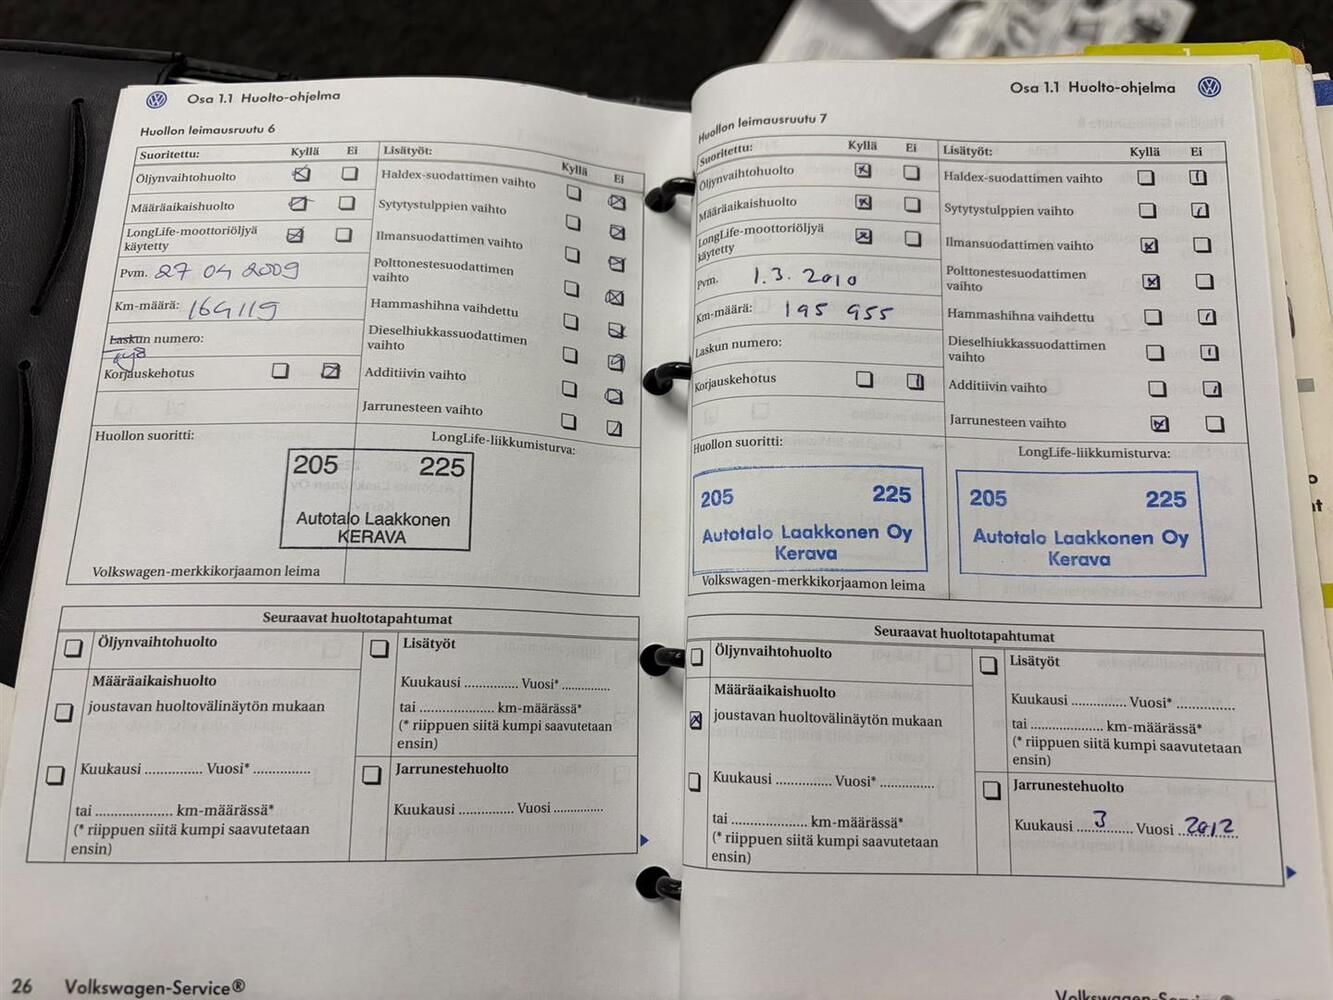 Osa 1.1 Huolto-ohjelma
Huollon leimausruutu 6
Suoritettu: Kyllä Ei
Öljynvaihtohuolto
Määräaikaishuolto
LongLife-moottoriöljyä
käytetty
Pvm. 27 04 2009
Km-määrä: 164119
Laskun numero:
Korjauskehotus
Lisätyöt: Kyllä Ei
Haldex-suodattimen vaihto
Sytytystulppien vaihto
Ilmansuodattimen vaihto
Polttonestesuodattimen
vaihto
Hammashihna vaihdettu
Dieselhiukkassuodattimen
vaihto
Additiivin vaihto
Jarrunesteen vaihto
Huollon suoritti:
LongLife-liikkumisturva:
205 225
Autotalo Laakkonen
KERAVA
Volkswagen-merkkikorjaamon leima
Seuraavat huoltotapahtumat
Öljynvaihtohuolto
Määräaikaishuolto
joustavan huoltovälinäytön mukaan
Kuukausi .............. Vuosi* ..............
tai .................. km-määrässä*
(* riippuen siitä kumpi saavutetaan
ensin)
Lisätyöt
Kuukausi .............. Vuosi* ............
tai .................. km-määrässä*
(* riippuen siitä kumpi saavutetaan
ensin)
Jarrunestehuolto
Kuukausi .............. Vuosi ............
26 Volkswagen-Service®
Osa 1.1 Huolto-ohjelma
Huollon leimausruutu 7
Suoritettu: Kyllä Ei
Öljynvaihtohuolto
Määräaikaishuolto
LongLife-moottoriöljyä
käytetty
Pvm. 1.3. 2010
Km-määrä: 195 955
Laskun numero:
Korjauskehotus
Lisätyöt: Kyllä Ei
Haldex-suodattimen vaihto
Sytytystulppien vaihto
Ilmansuodattimen vaihto
Polttonestesuodattimen
vaihto
Hammashihna vaihdettu
Dieselhiukkassuodattimen
vaihto
Additiivin vaihto
Jarrunesteen vaihto
Huollon suoritti:
205 225
Autotalo Laakkonen Oy
Kerava
Volkswagen-merkkikorjaamon leima
LongLife-liikkumisturva:
205 225
Autotalo Laakkonen Oy
Kerava
Seuraavat huoltotapahtumat
Öljynvaihtohuolto
Määräaikaishuolto
joustavan huoltovälinäytön mukaan
Kuukausi .............. Vuosi* ..............
tai .................. km-määrässä*
(* riippuen siitä kumpi saavutetaan
ensin)
Lisätyöt
Kuukausi .............. Vuosi* ..............
tai .................. km-määrässä*
(* riippuen siitä kumpi saavutetaan
ensin)
Jarrunestehuolto
Kuukausi 3 Vuosi 2012